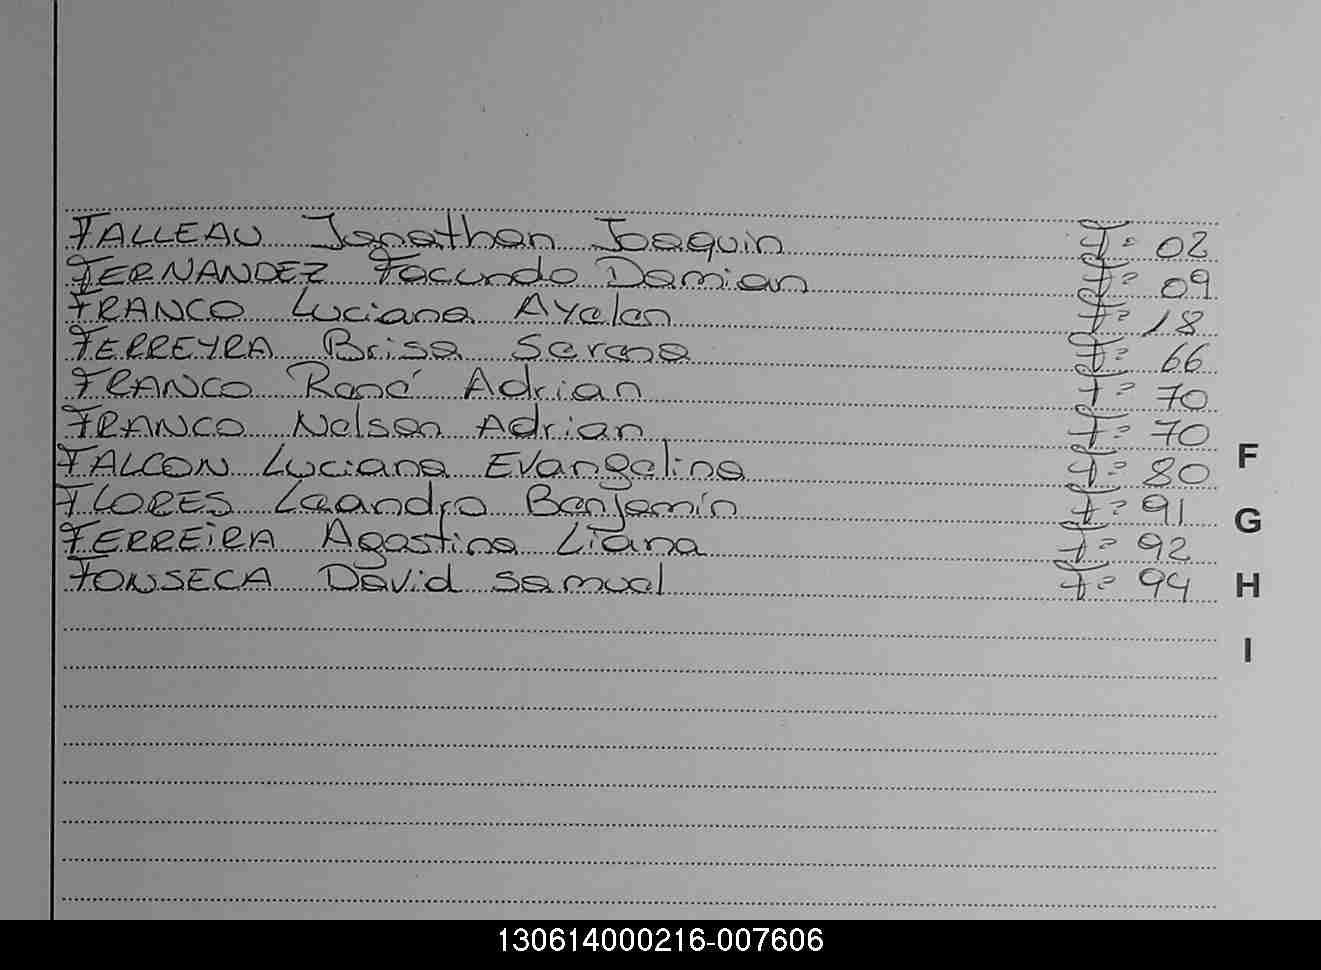 FALLEAU Jonathan Joaquin F= 02
FERNANDEZ Facundo Damian F= 09
FRANCO Luciana Ayelen F= 18
FERREYRA Brisa Serena F= 66
FRANCO René Adrian F= 70
FRANCO Nelson Adrian F= 70
FALCON Luciana Evangelina F= 80
FLORES Leandro Benjamín F= 91
FERREiRA Agostina Liana F= 92
FONSECA David Samuel F= 94
F
G
H
I
130614000216-007606